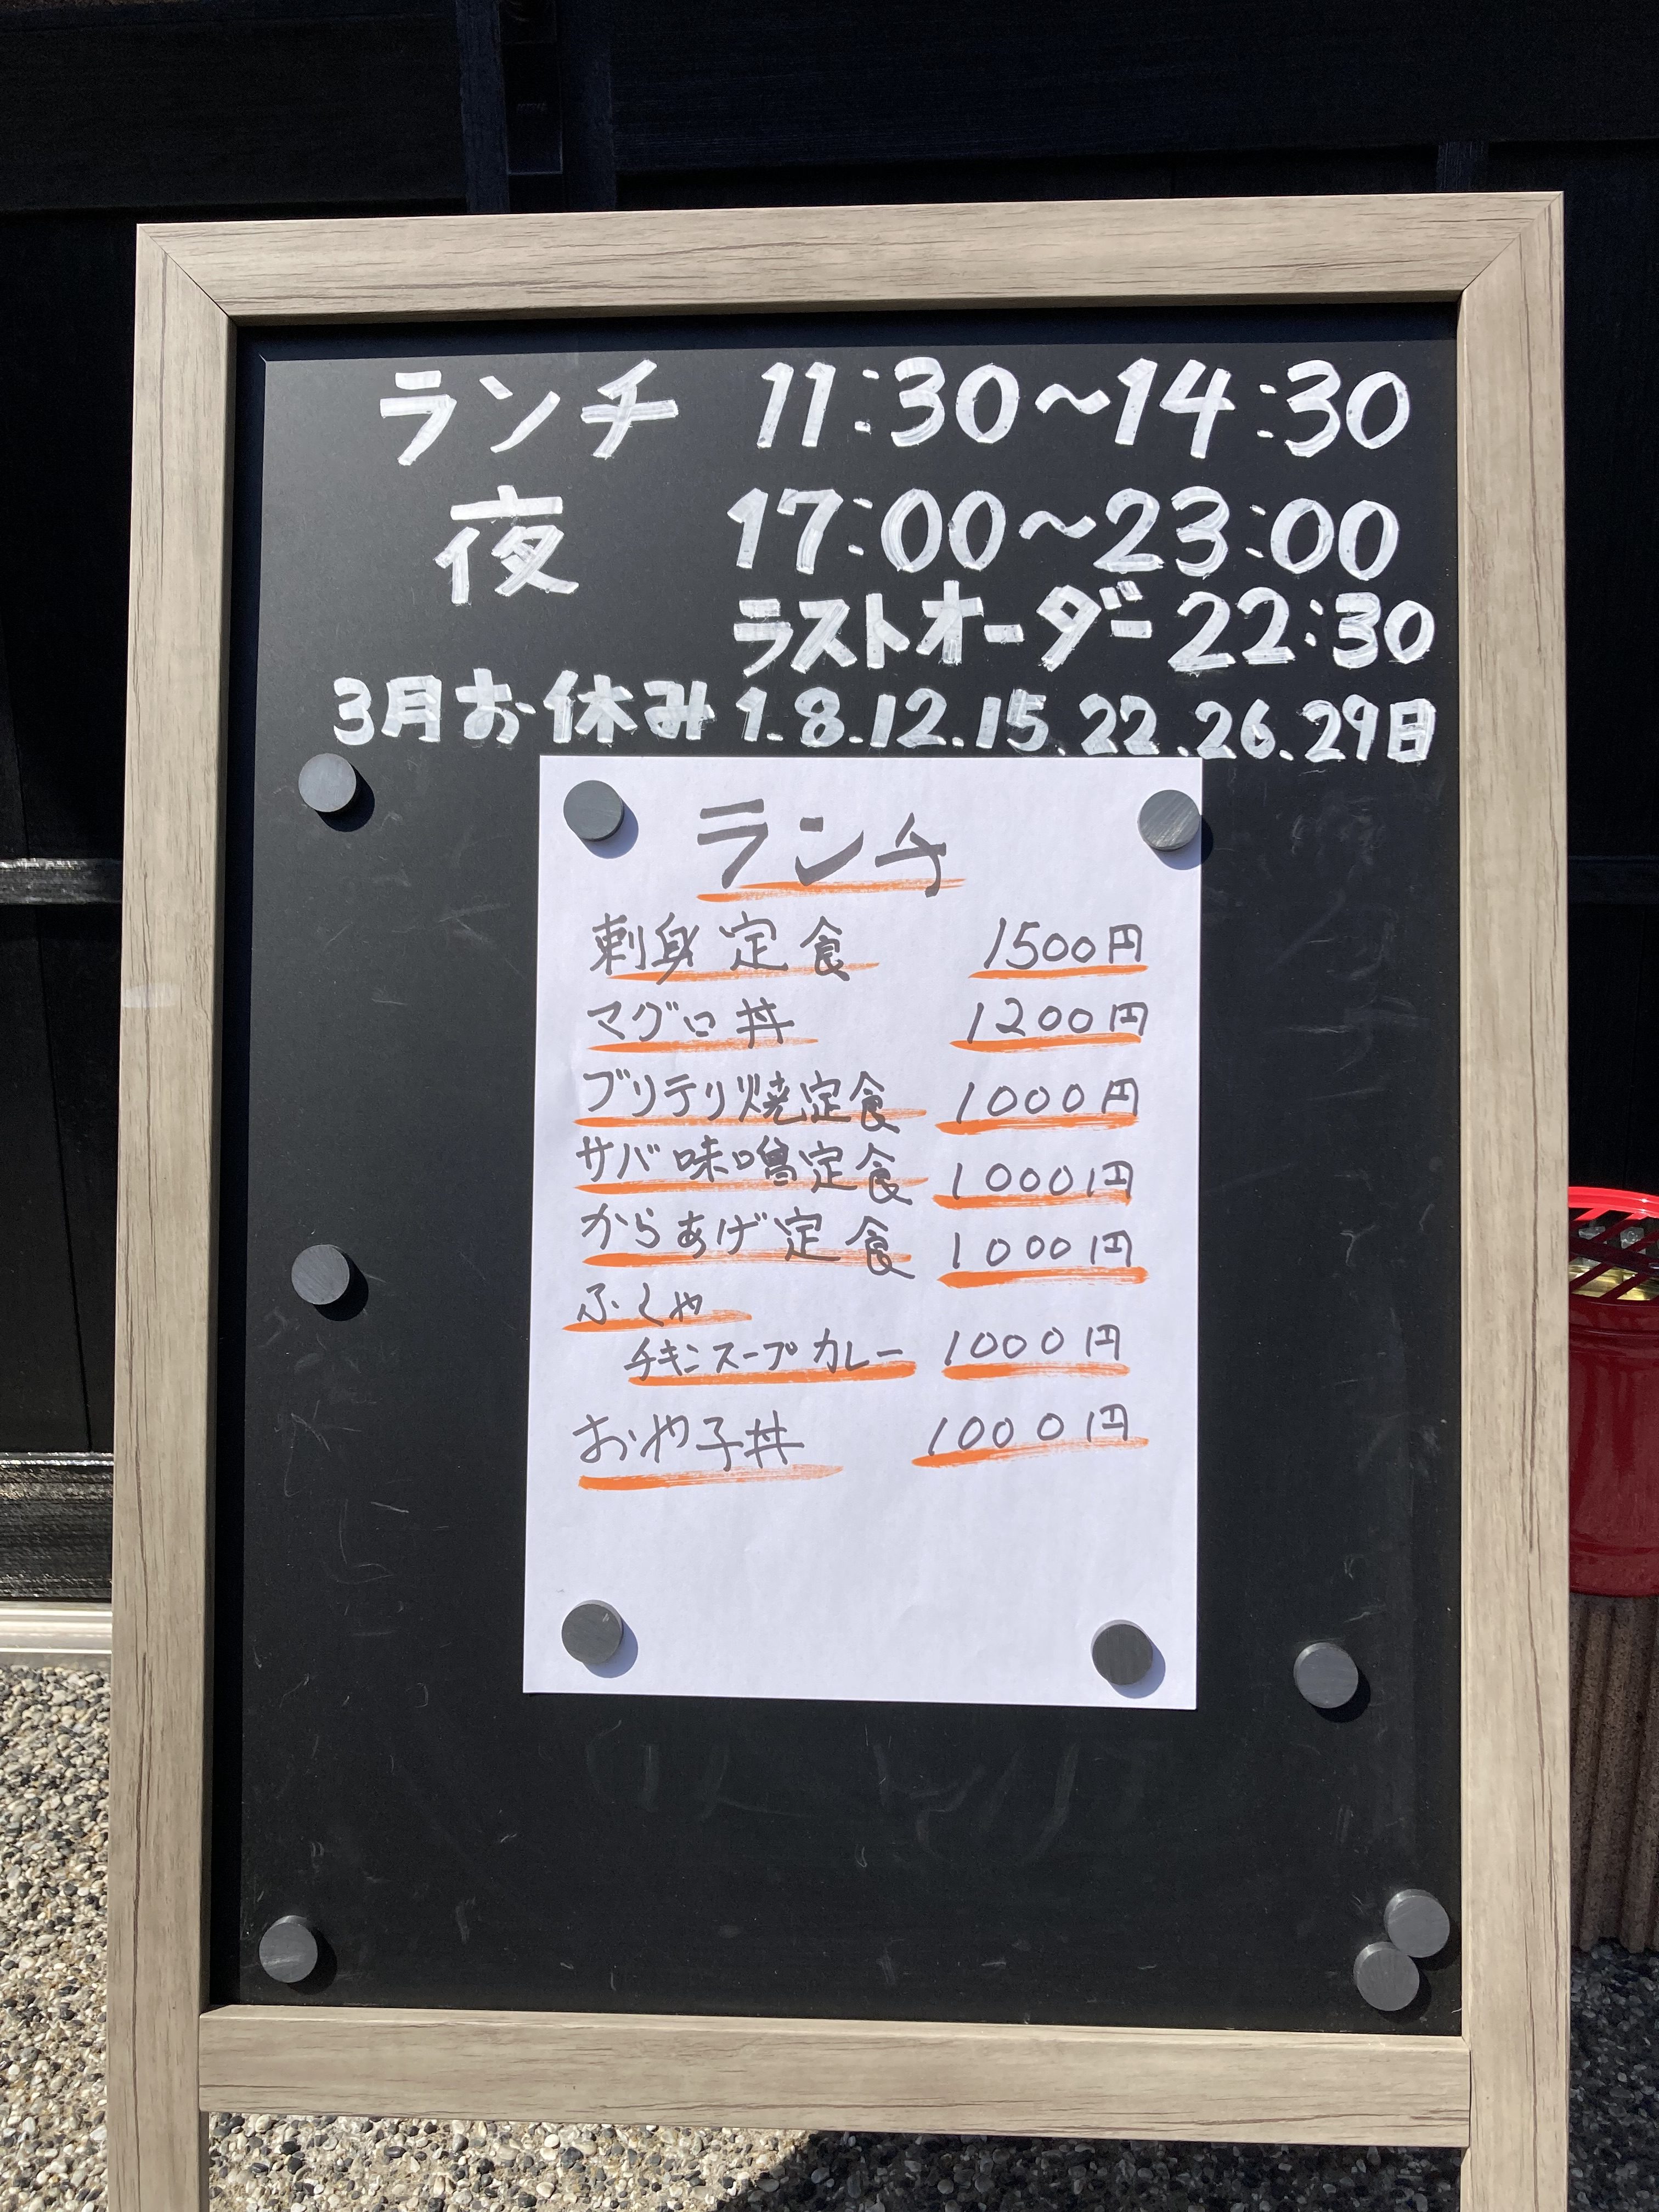 ランチ 11:30～14:30
夜 17:00～23:00
ラストオーダー 22:30
3月お休み 1.8.12.15.22.26.29日
ランチ
刺身定食 1500円
マグロ丼 1200円
ブリテリ焼定食 1000円
サバ味噌定食 1000円
からあげ定食 1000円
ふくや
チキンスープカレー 1000円
おや子丼 1000円